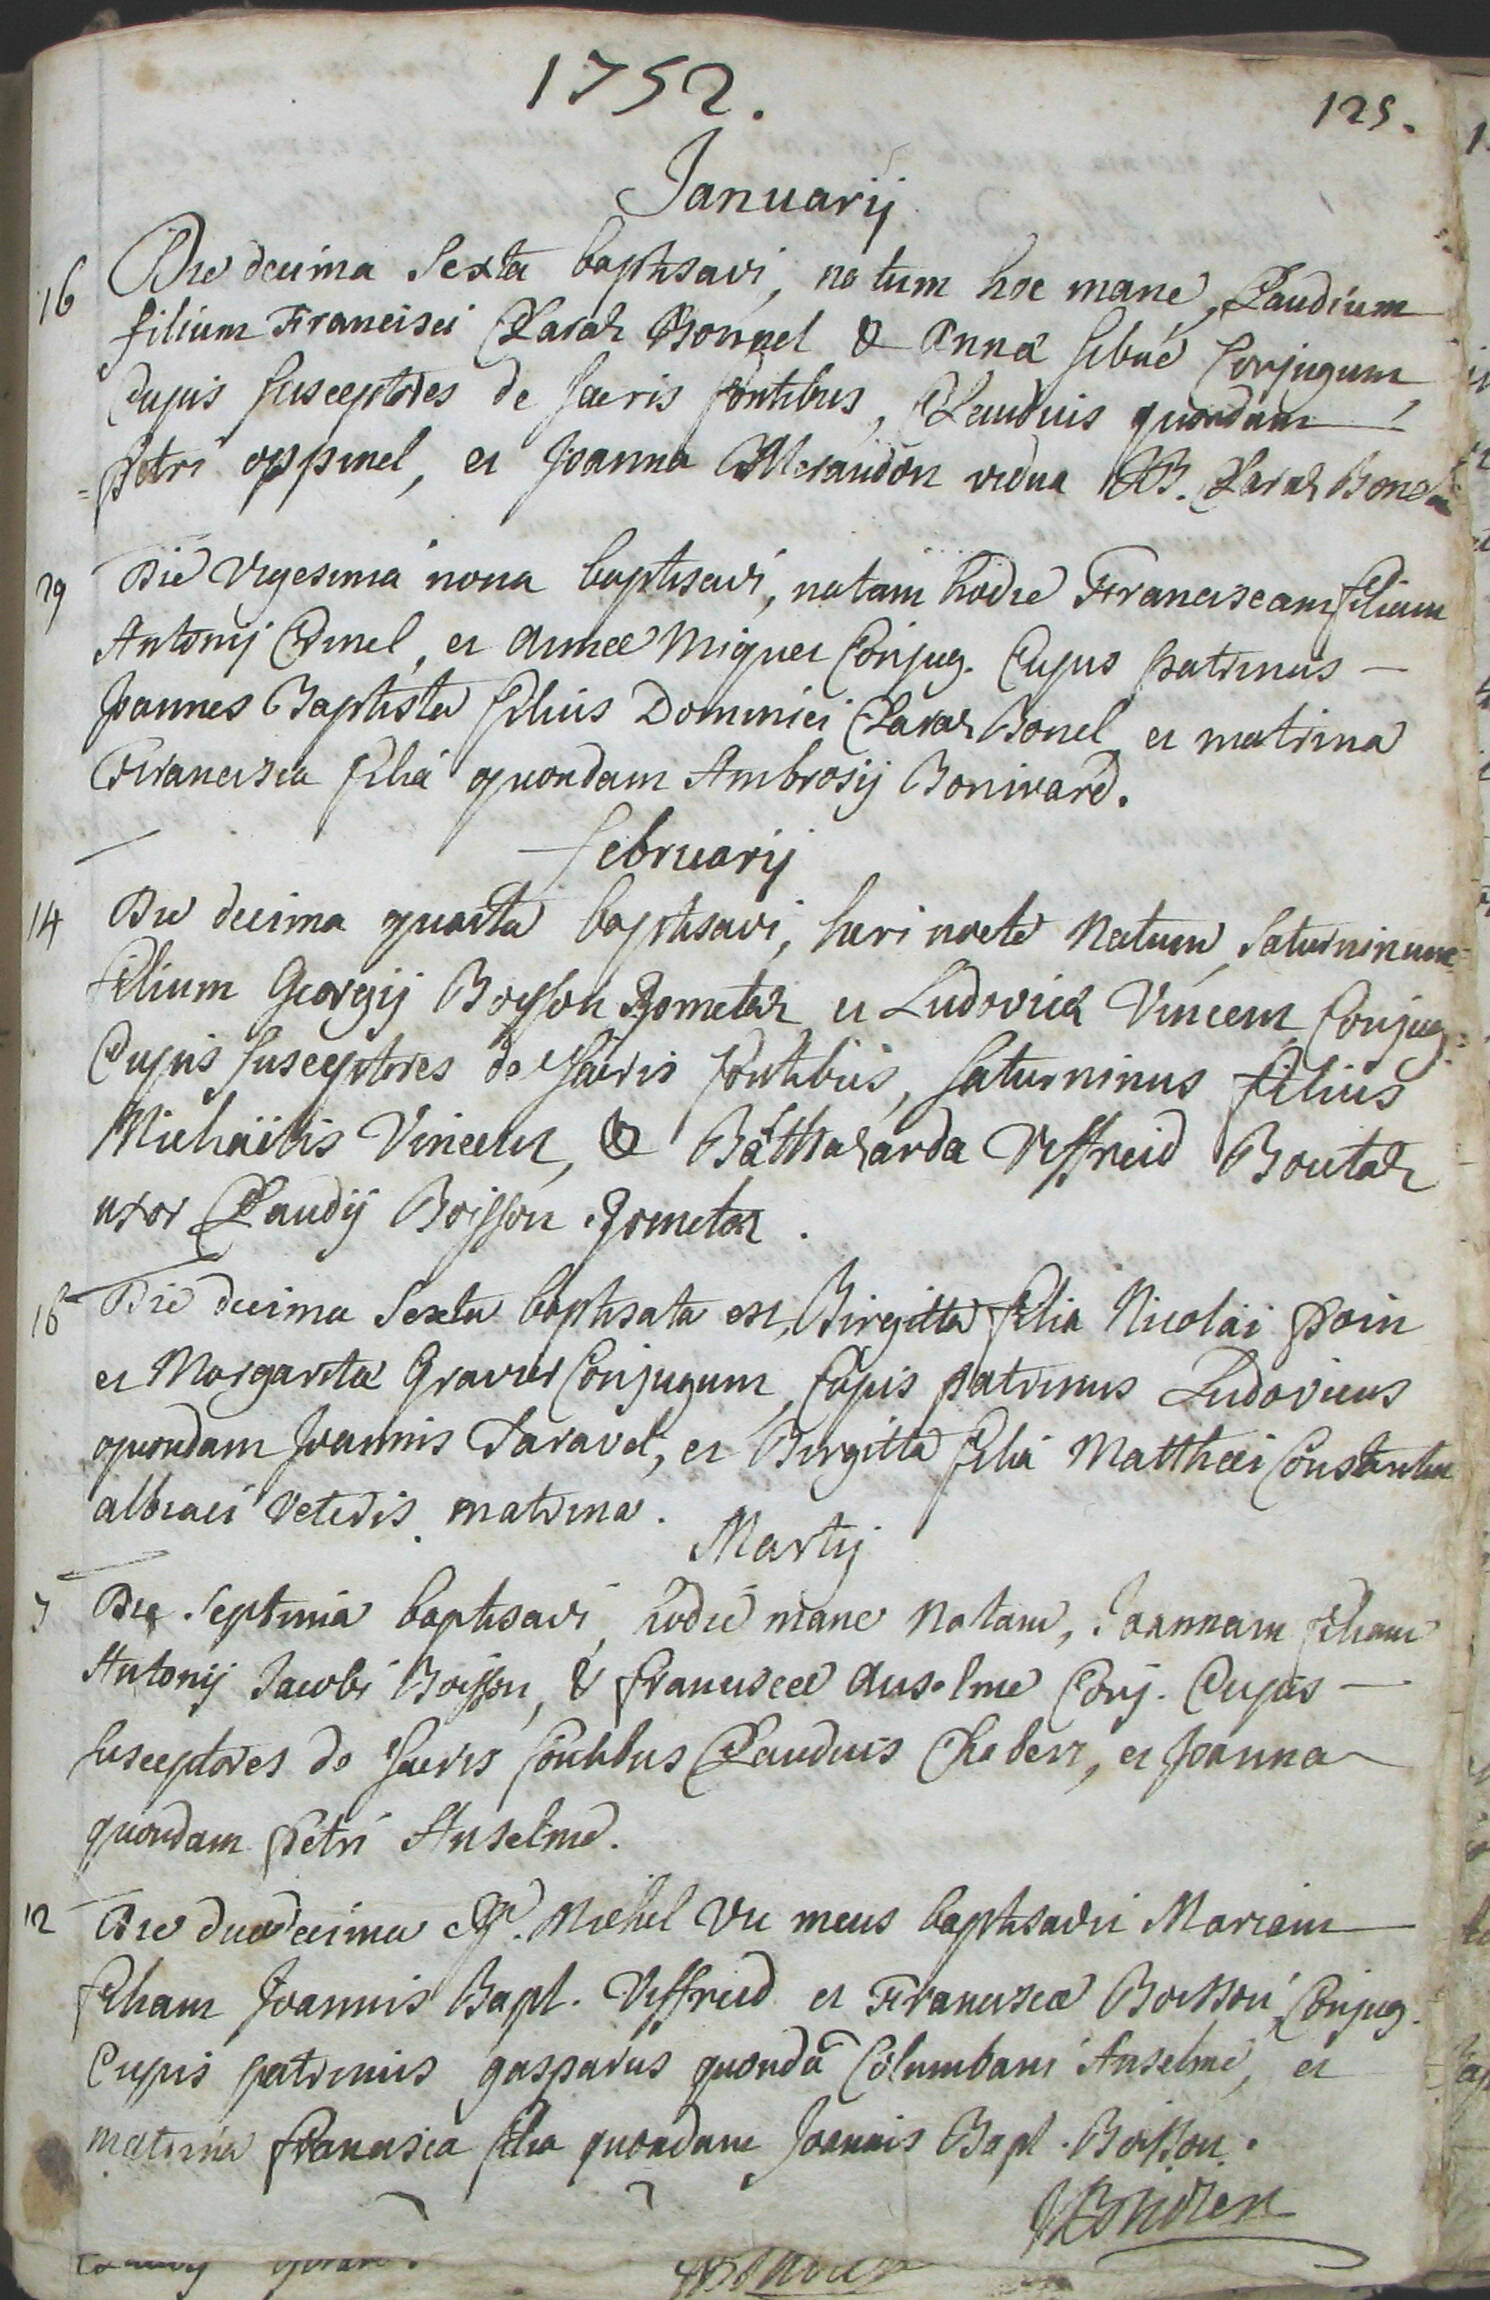 1752.
125.
Januarij
16 Die decima Sexta baptisavi, natum hoc mane, Claudium
filium Francisci Claraz Bonnel & Annæ Sibuë Conjugum,
Cujus Susceptores de Sacris fontibus, Claudius quondam
petri oppinel, et Joanna Meraudon vidua JB. Claraz Bonel
29 Die Vigesima nona baptisavi, natam hodie Franciscam filiam
Antonij Carnel, et Annæ Miquet Conjug. Cujus patrinus
Joannes Baptista filius Dominici Claraz Bonel et matrina
Francisca filia quondam Ambrosij Bonivard.
februarij
14 Die decima quarta baptisavi, heri nocte Natum, Saturninum
filium Georgij Boisson Gometaz et Ludovicæ Vincent Conjug.
Cujus Susceptores de Sacris fontibus, Saturninus filius
Michaëlis Vincent, & Balthazarda Uffreid Boutaz
uxor Claudij Boisson Gometaz.
16 Die decima Sexta baptisata est, Birgitta filia Nicolai poin
et Margaritæ Gravier Conjugum, Cujus patrinus Ludovicus
quondam Joannis Taravel, et Birgitta filia Matthæi Constantin
albiaci veteris matrina.
Martij
7 Die Septima baptisavi, hodie mane Natam, Joannam filiam
Antonij Jacobi Boisson, & franciscæ Anselme Conj. Cujus
Susceptores de Sacris fontibus Claudius Chabert, et Joanna
quondam petri Anselme.
12 Die duodecima Michel Vic meus baptisavit Mariam
filiam Joannis Bapt. Uffreid et Franciscæ Boisson Conjug.
Cujus patrinus gasparus quondã Columbani Anselme, et
matrina francisca filia quondam Joannis Bapt. Boisson.